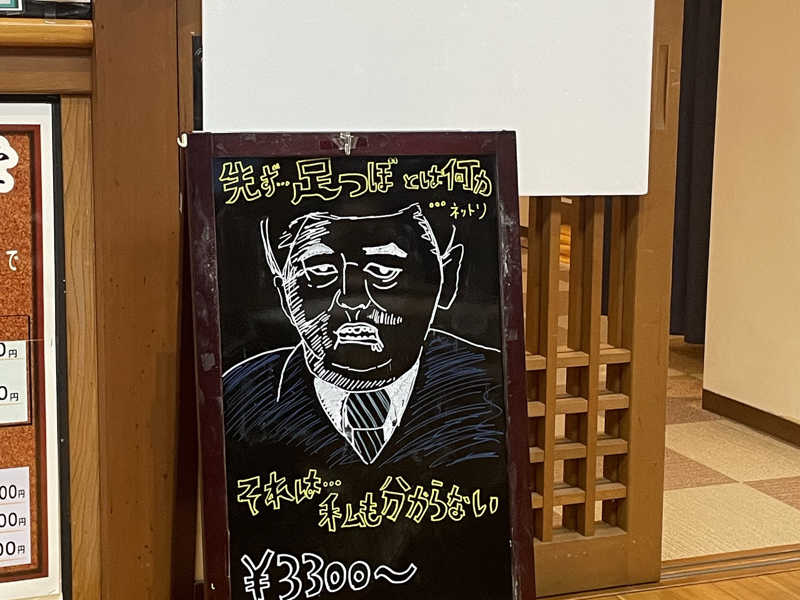 先ず…足つぼとは何か
…ネットリ
それは…
私も分からない
¥3300〜
で
0円
0円
00円
00円
00円